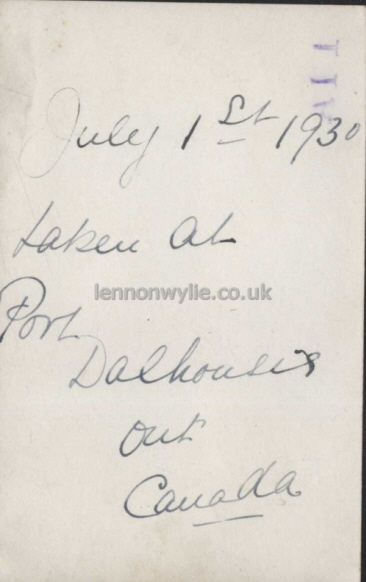 July 1st 1930
taken at
lennonwylie.co.uk
Port
Dalhousie
Ont
Canada